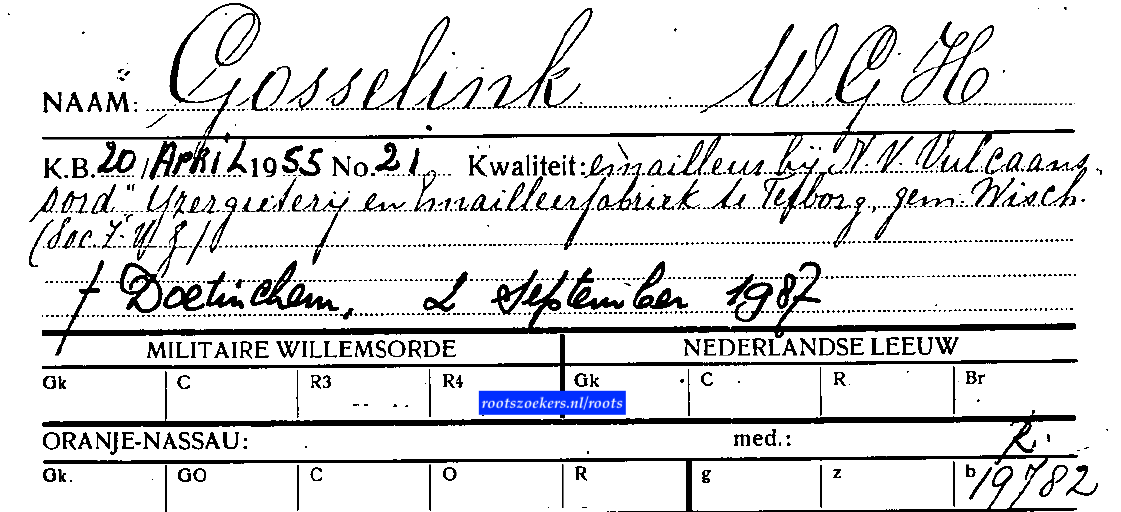 NAAM: Gosselink W G H
K.B. 20 APRIL 1955 No. 21. Kwaliteit: emailleur bij N.V. Vulcaans-
oord" Yzergieterij en Emailleerfabriek te Terborg, gem. Wisch.
(Soc. Z.
† Doetinchem, 2 September 1987
MILITAIRE WILLEMSORDE NEDERLANDSE LEEUW
Gk C R3 R4 Gk C R Br
rootszoekers.nl/roots
ORANJE-NASSAU: med.: R.
Gk. GO C O R g z b 19782